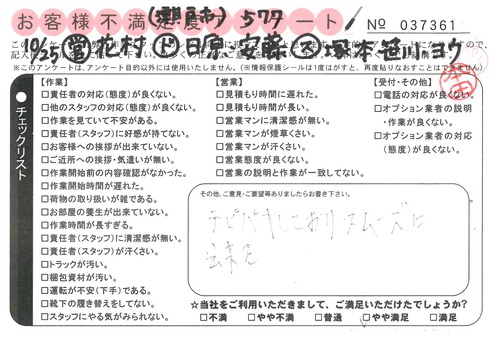 お客様不満足度アンケート
(瀬戸市) 577
No 037361
10/25 営 花村 ド 日泉 安藤 ス 塚本 笹川・ヨウ
※このアンケートは、アンケート目的以外には使用しません。(※情報保護シールは1度はがすと、再度貼りなおすことはできません。)
チェックリスト
【作業】
□責任者の対応(態度)が良くない。
□他のスタッフの対応(態度)が良くない。
□作業を見ていて不安がある。
□責任者(スタッフ)に好感が持てない。
□お客様への挨拶が出来ていない。
□ご近所への挨拶・気遣いが無い。
□作業開始前の内容確認がなかった。
□作業開始時間が遅れた。
□荷物の取り扱いが雑である。
□お部屋の養生が出来ていない。
□作業時間が長すぎる。
□責任者(スタッフ)に清潔感が無い。
□責任者(スタッフ)が汗くさい。
□トラックが汚い。
□梱包資材が汚い。
□運転が不安(下手)である。
□靴下の履き替えをしてない。
□スタッフにやる気がみられない。
【営業】
□見積もり時間に遅れた。
□見積もり時間が長い。
□営業マンに清潔感が無い。
□営業マンが煙草くさい。
□営業マンが汗くさい。
□営業態度が良くない。
□営業の説明と作業が一致してない。
【受付・その他】
□電話の対応が良くない。
□オプション業者の説明
・作業が良くない。
□オプション業者の対応
(態度)が良くない。
その他、ご意見・ご要望等ありましたらお書き下さい。
テキパキしており スムーズに
出来た
☆当社をご利用いただきまして、ご満足いただけたでしょうか?
□不満 □やや不満 □普通 □やや満足 □満足